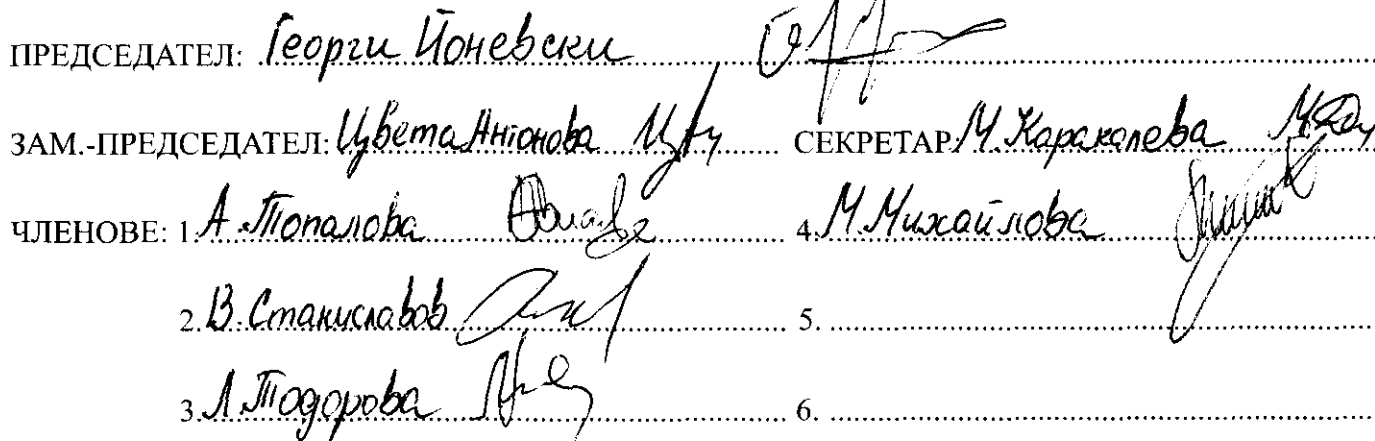 ПРЕДСЕДАТЕЛ: Георги Йоневски
ЗАМ.-ПРЕДСЕДАТЕЛ: Цвета Антонова СЕКРЕТАР М. Караколева
ЧЛЕНОВЕ: 1. А. Топалова 4. М. Михайлова
2. В. Станиславов 5.
3. Л. Тодорова 6.